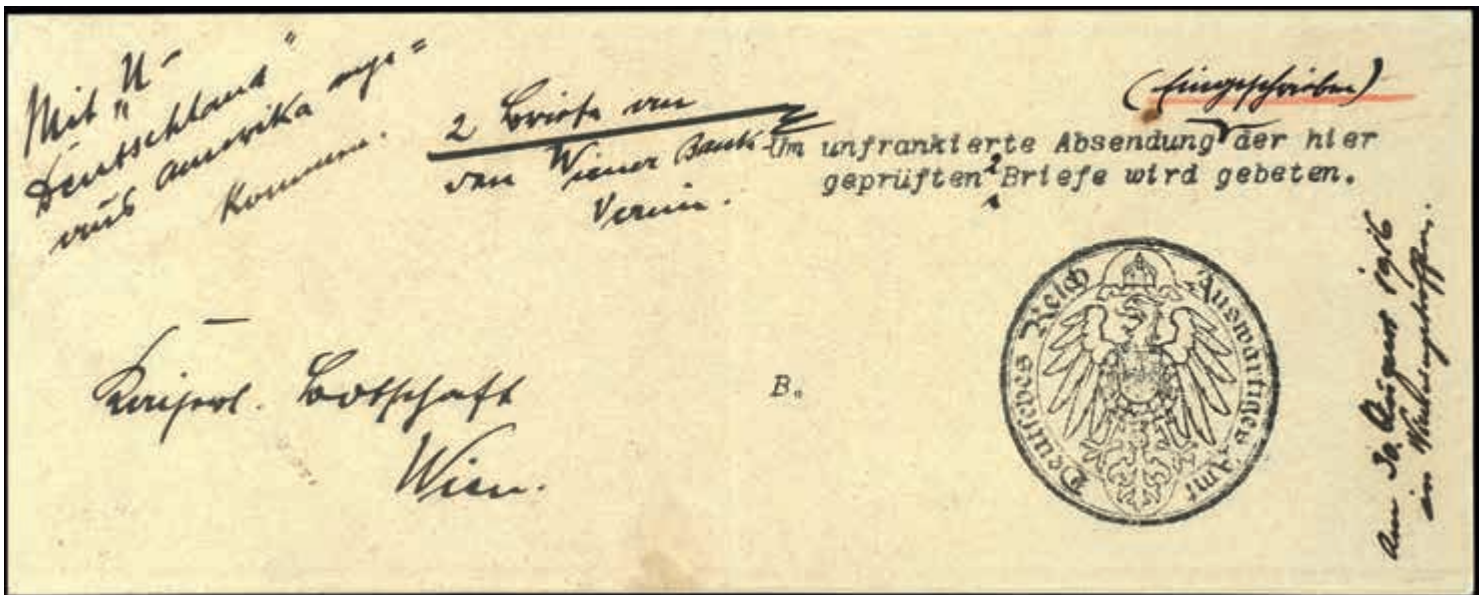 Mit "U-
Deutschland"
aus Amerika ange=
kommen.
2 Briefe an
den Wiener Bank-
Verein.
(Eingeschrieben)
Um unfrankierte Absendung der hier
geprüften 2 Briefe wird gebeten.
Kaiserl. Botschaft
Wien.
B.
Deutsches Reich Auswärtiges Amt
Am 30. August 1916
in